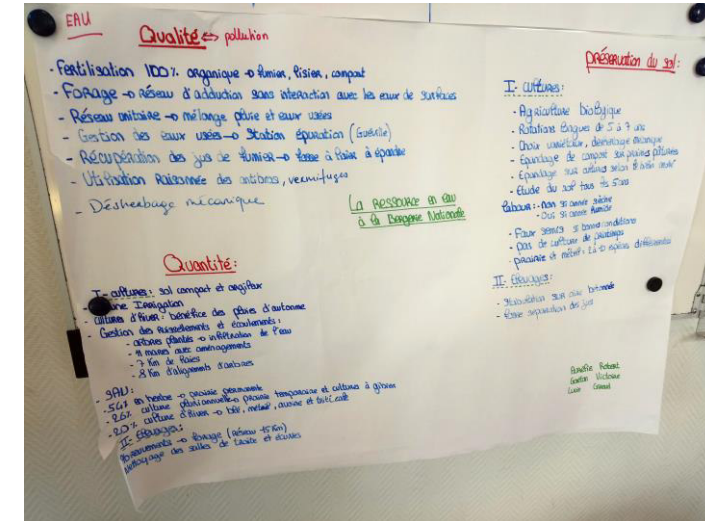 EAU
Qualité ⇔ pollution
- Fertilisation 100% organique → fumier, lisier, compost
- Forage → réseau d'adduction sans interaction avec les eaux de surfaces
- Réseau unitaire → mélange pluie et eaux usées
- Gestion des eaux usées → Station épuration (Guéville)
- Récupération des jus de fumier → fosse à lisier à épandre
- Utilisation raisonnée des antibios, vermifuges
- Désherbage mécanique
La ressource en eau
à la Bergerie Nationale
Quantité:
I- cultures: sol compact et argileux
- aucune Irrigation
- cultures d'hiver: bénéfice des pluies d'automne
- Gestion des ruissellements et écoulements:
- arbres plantés → infiltration de l'eau
- 11 mares avec aménagements
- 7 Km de haies
- 8 Km d'alignements d'arbres
- SAU:
- 54% en herbe → prairie permanente
- 26% culture pluriannuelle → prairie temporaire et cultures à gibier
- 20% culture d'hiver → blé, méteil, avoine et triticale
II- Elevages:
Abreuvements → forage (réseau 15 Km)
Nettoyage des salles de traite et écuries
préservation du sol:
I- cultures:
- Agriculture biologique
- Rotations longues de 5 à 7 ans
- Choix variétaux, désherbage mécanique
- Epandage de compost sur prairies pâturées
- Epandage sur cultures selon
- Etude du sol tous les 5 ans
Labour: - Non si année sèche
- Oui si année humide
- Faux semis si bonnes conditions
- pas de culture de printemps
- prairie et méteil: 2 à 10 espèces différentes
II- Elevages:
- Stabulation sur aire bétonnée
- fosse séparation des jus
Robert
Victoire